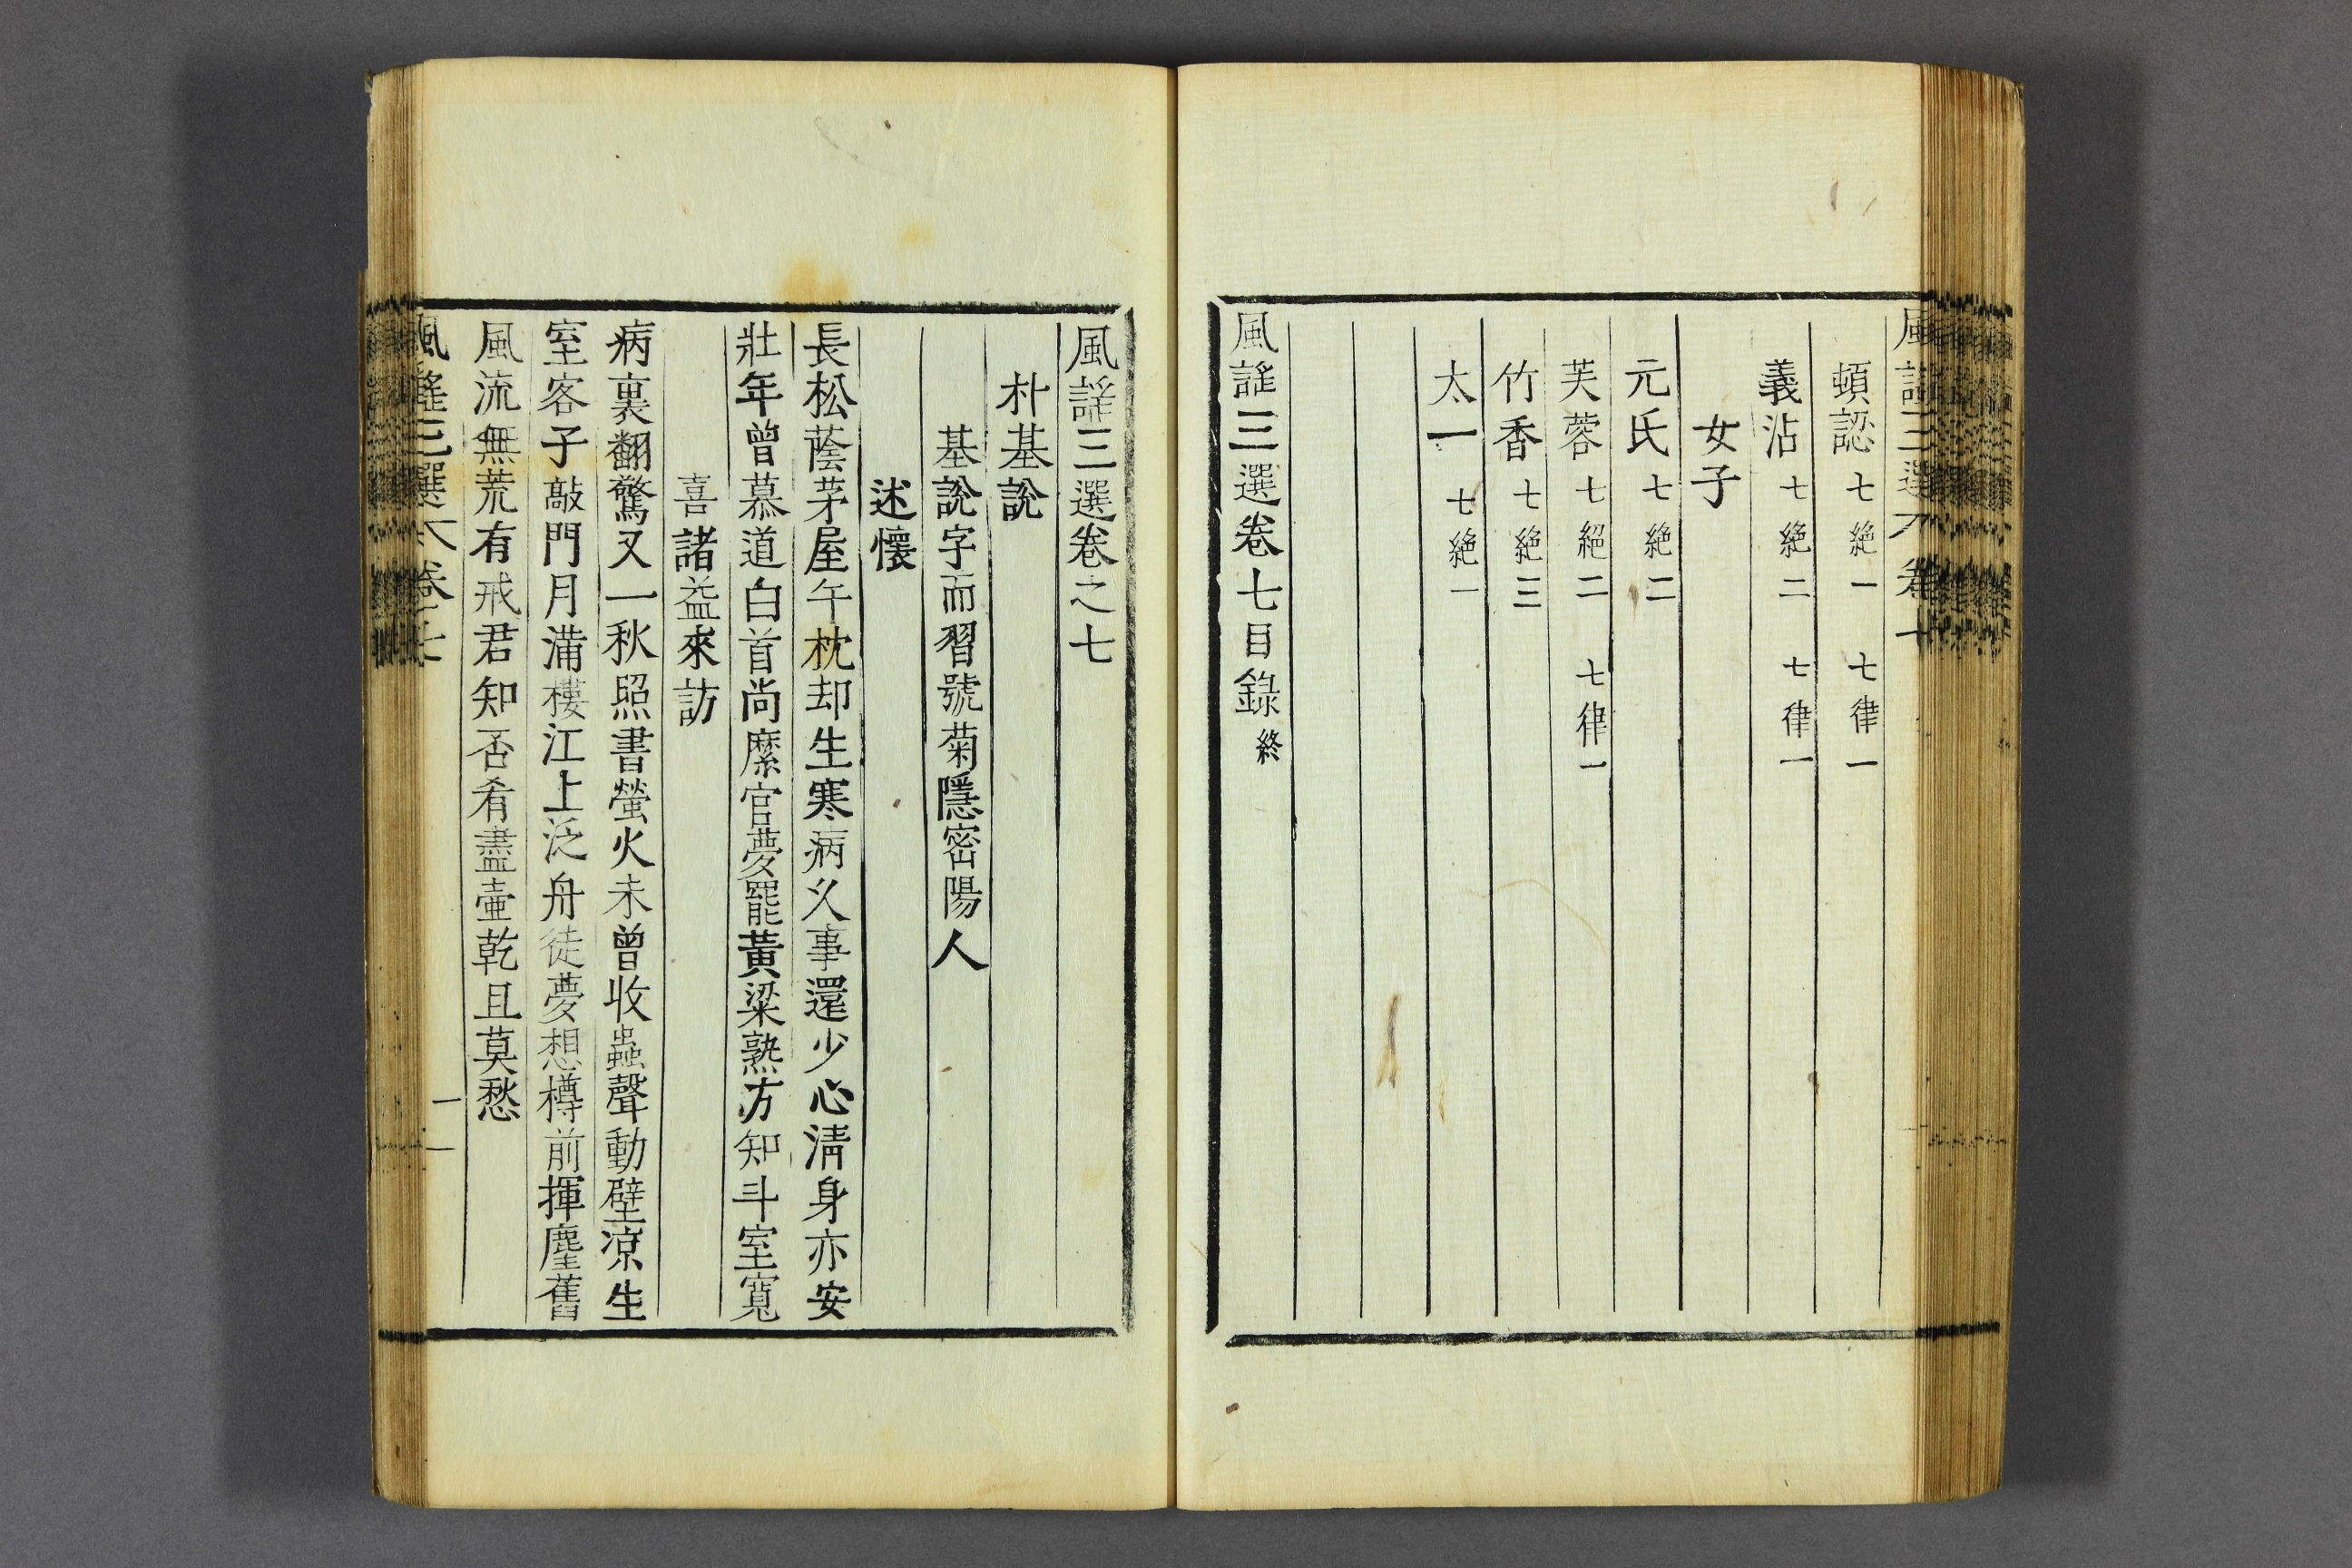 頓認 七絶一 七律一
義沾 七絶二 七律一
女子
元氏 七絶二
芙蓉 七絕二 七律一
竹香 七絶三
太一 七絶一
風謠三選卷七目錄 終
風謠三選卷之七
朴基說
基說字而習號菊隱密陽人
述懷
長松蔭茅屋午枕却生寒病久事還少心淸身亦安
壯年曾慕道白首尚縻官夢罷黃粱熟方知斗室寬
喜諸益來訪
病裏翻驚又一秋照書螢火未曾收蟲聲動壁凉生
室客子敲門月滿樓江上泛舟徒夢想樽前揮麈舊
風流無荒有戒君知否肴盡壷乾且莫愁
風謠三選 卷之七 一